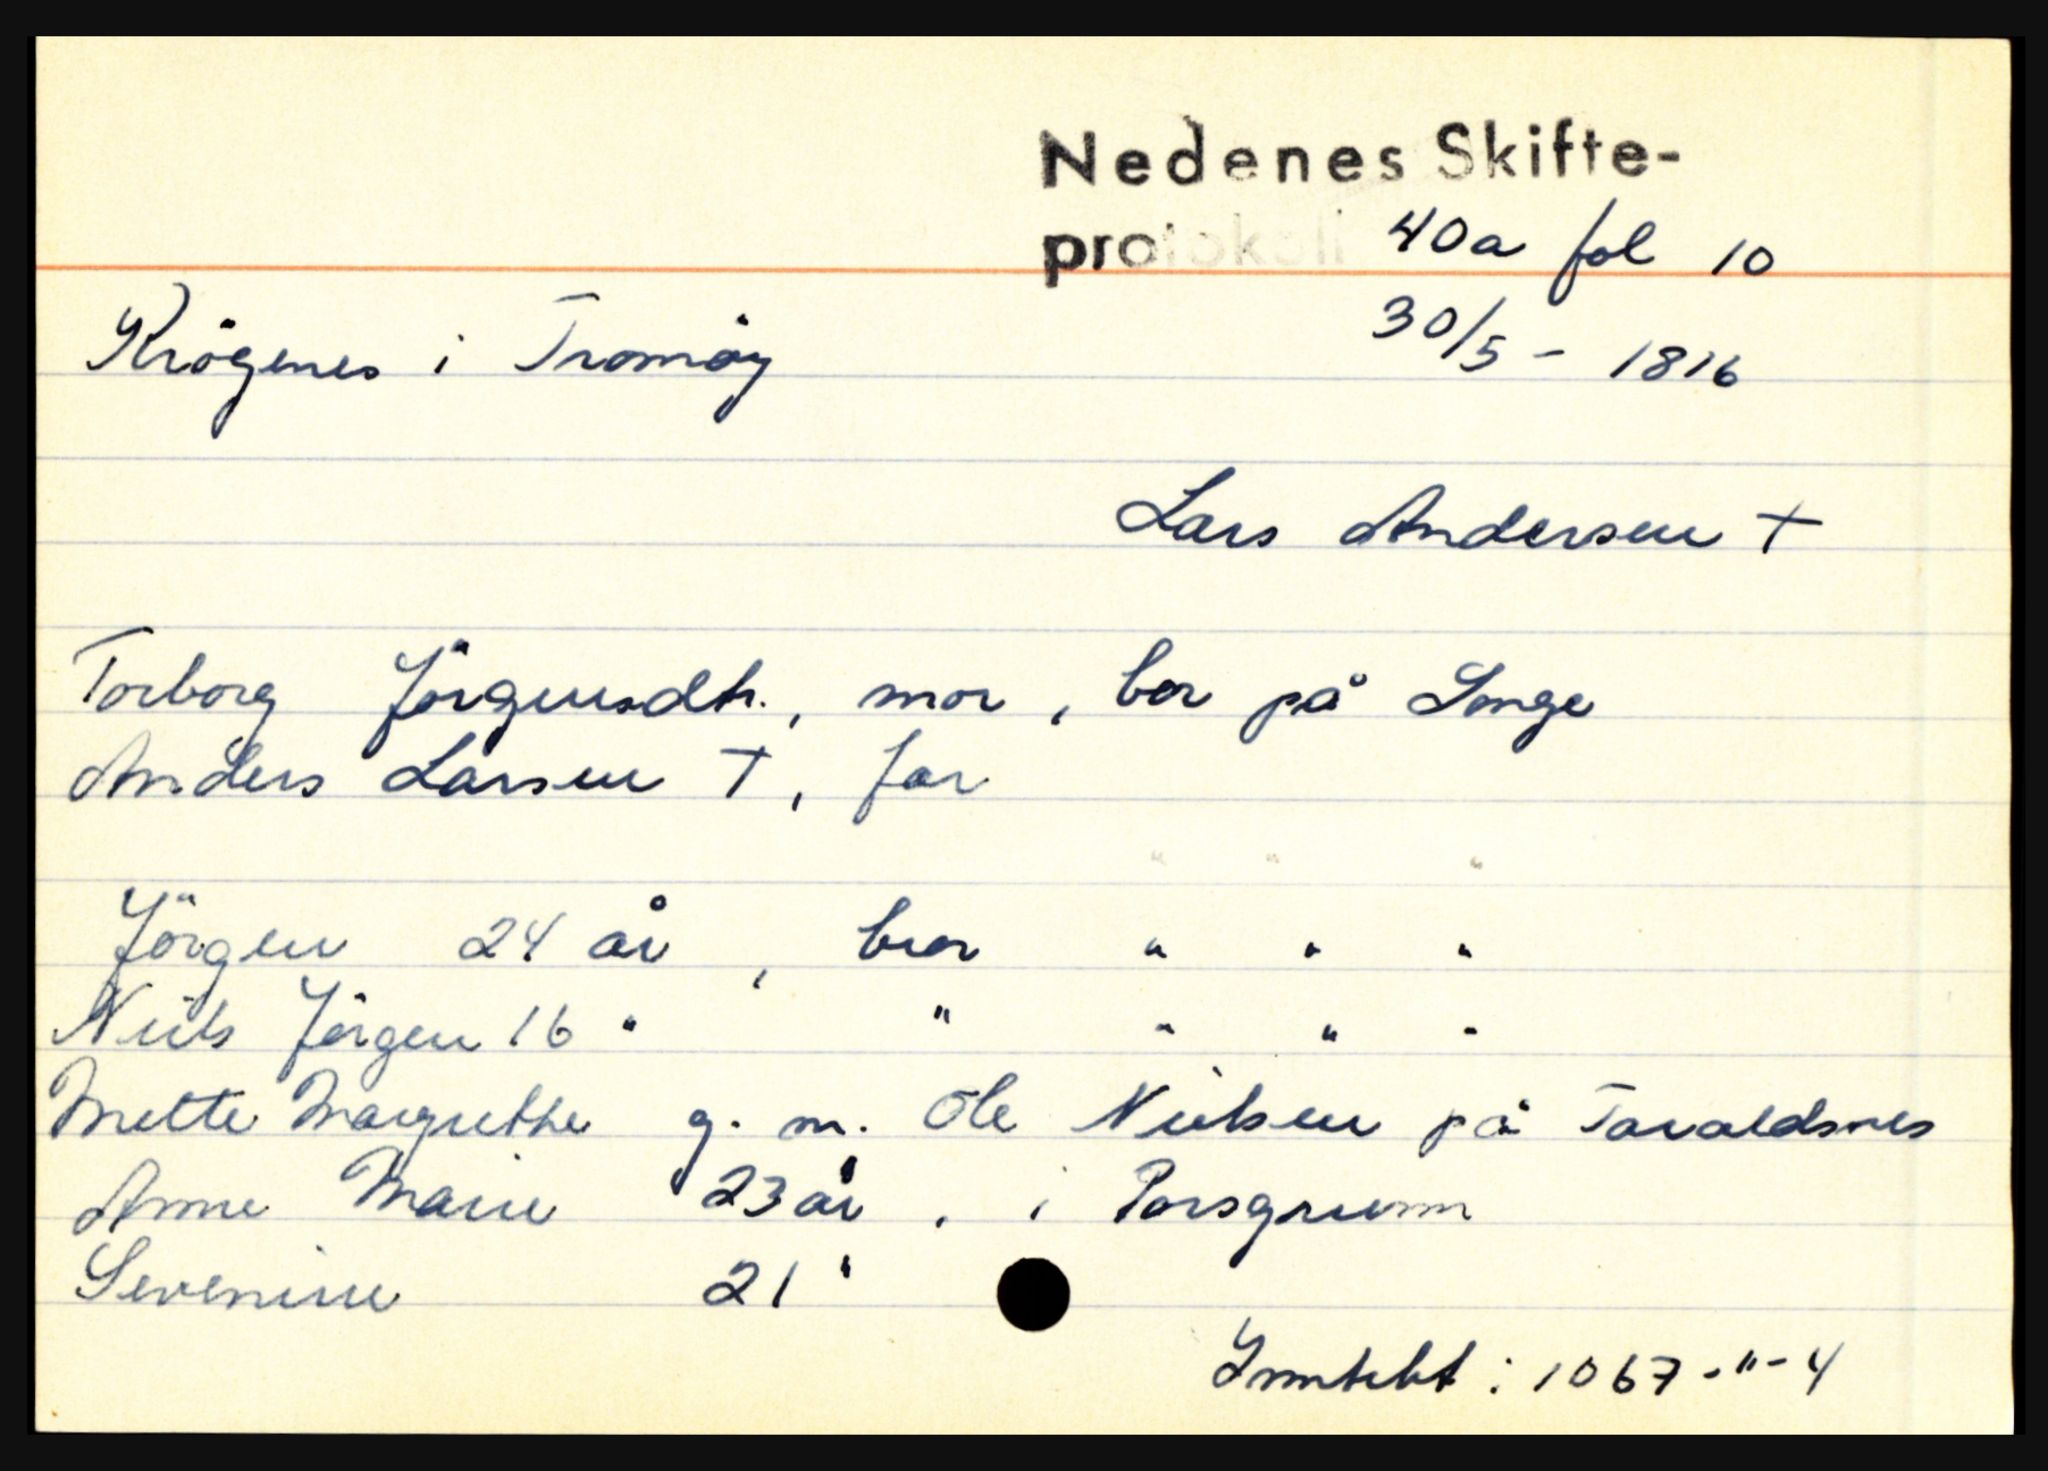 Nedenes Skifte-
protokoll 40a fol 10
30/5 - 1816
Krögenes i Tromöy
Lars Andersen †
Torborg Jörgensdtr., mor, bor på Longe
Anders Larsen †, far
" " "
Jörgen 24 år, bror " " "
Niels Jörgen 16 " " " " "
Mette Margrethe g. m. Ole Nielsen på Taraldsnes
Anne Marie 23 år, i Porsgrunn
Severine 21 "
Inntekt : 1067-"-4